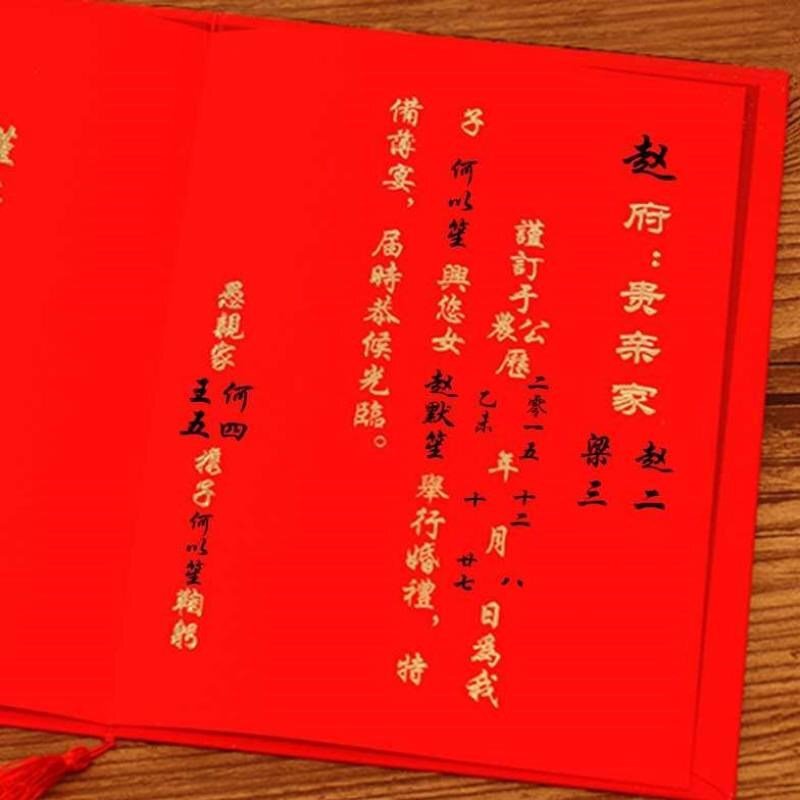 赵府：贵亲家
赵二
梁三
謹訂于公
農歷
二零一五
乙未
年
十二
十
月
八
廿七
日為我
子何以笙興您女赵默笙舉行婚禮，特
備薄宴，届時恭候光臨。
愚親家
何四
王五
攜子何以笙鞠躬